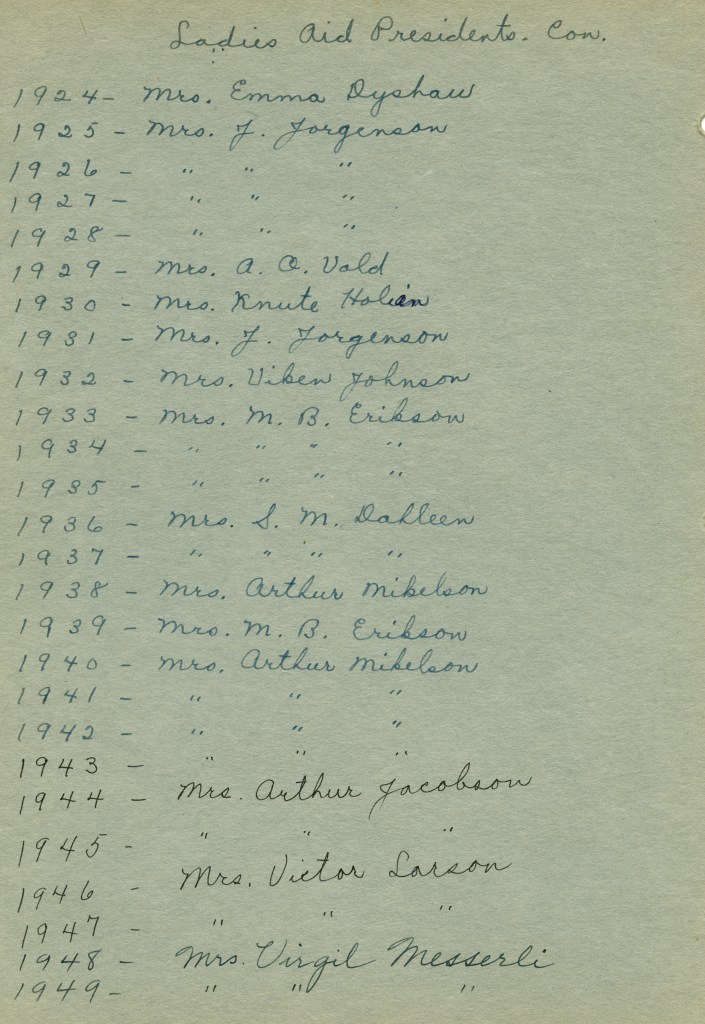 Ladies Aid Presidents. Con.
1924- Mrs. Emma Dyshaw
1925 - Mrs. J. Jorgenson
1926 - " " "
1927 - " " "
1928 - " " "
1929 - Mrs. A. O. Vold
1930 - Mrs. Knute Holian
1931 - Mrs. J. Jorgenson
1932 - Mrs. Viken Johnson
1933 - Mrs. M. B. Erikson
1934 - " " " "
1935 - " " " "
1936 - Mrs. S. M. Dahleen
1937 - " " " "
1938 - Mrs. Arthur Mikelson
1939 - Mrs. M. B. Erikson
1940 - Mrs. Arthur Mikelson
1941 - " " "
1942 - " " "
1943 - " " "
1944 - Mrs. Arthur Jacobson
1945 - " " "
1946 - Mrs. Victor Larson
1947 - " " "
1948 - Mrs. Virgil Messerli
1949 - " " "